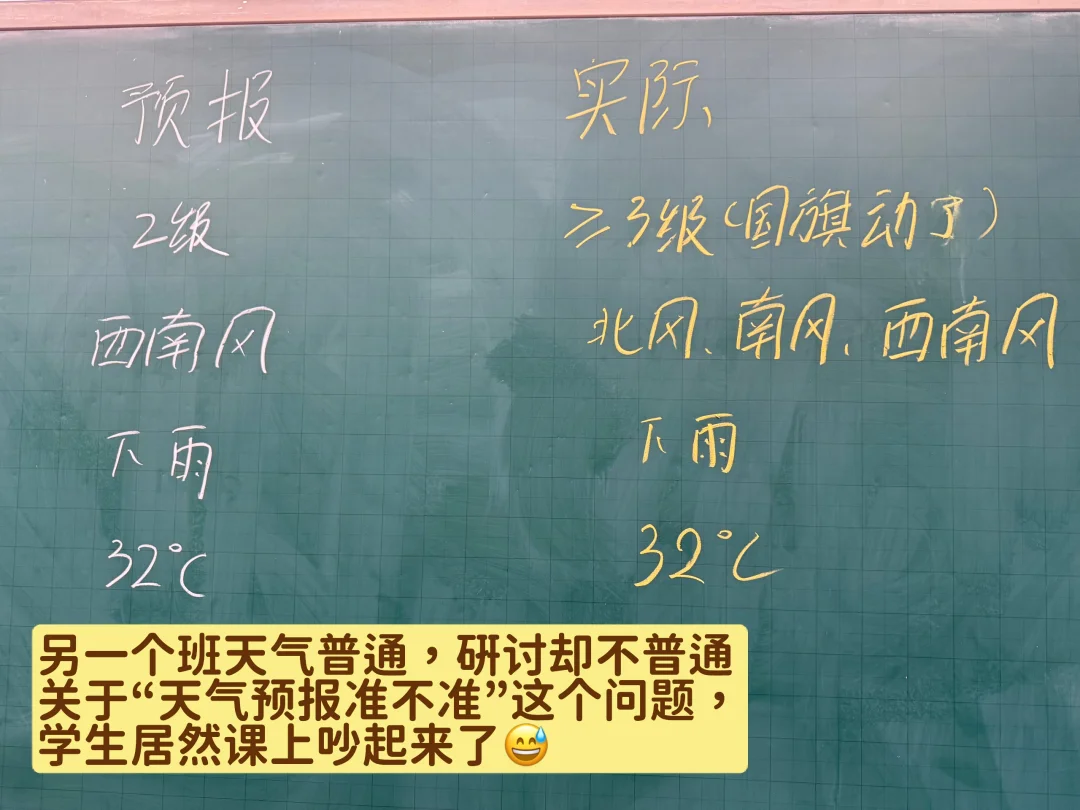 预报 实际
2级 ≥3级(国旗动了)
西南风 北风、南风、西南风
下雨 下雨
32℃ 32℃
另一个班天气普通，研讨却不普通
关于“天气预报准不准”这个问题，
学生居然课上吵起来了😅